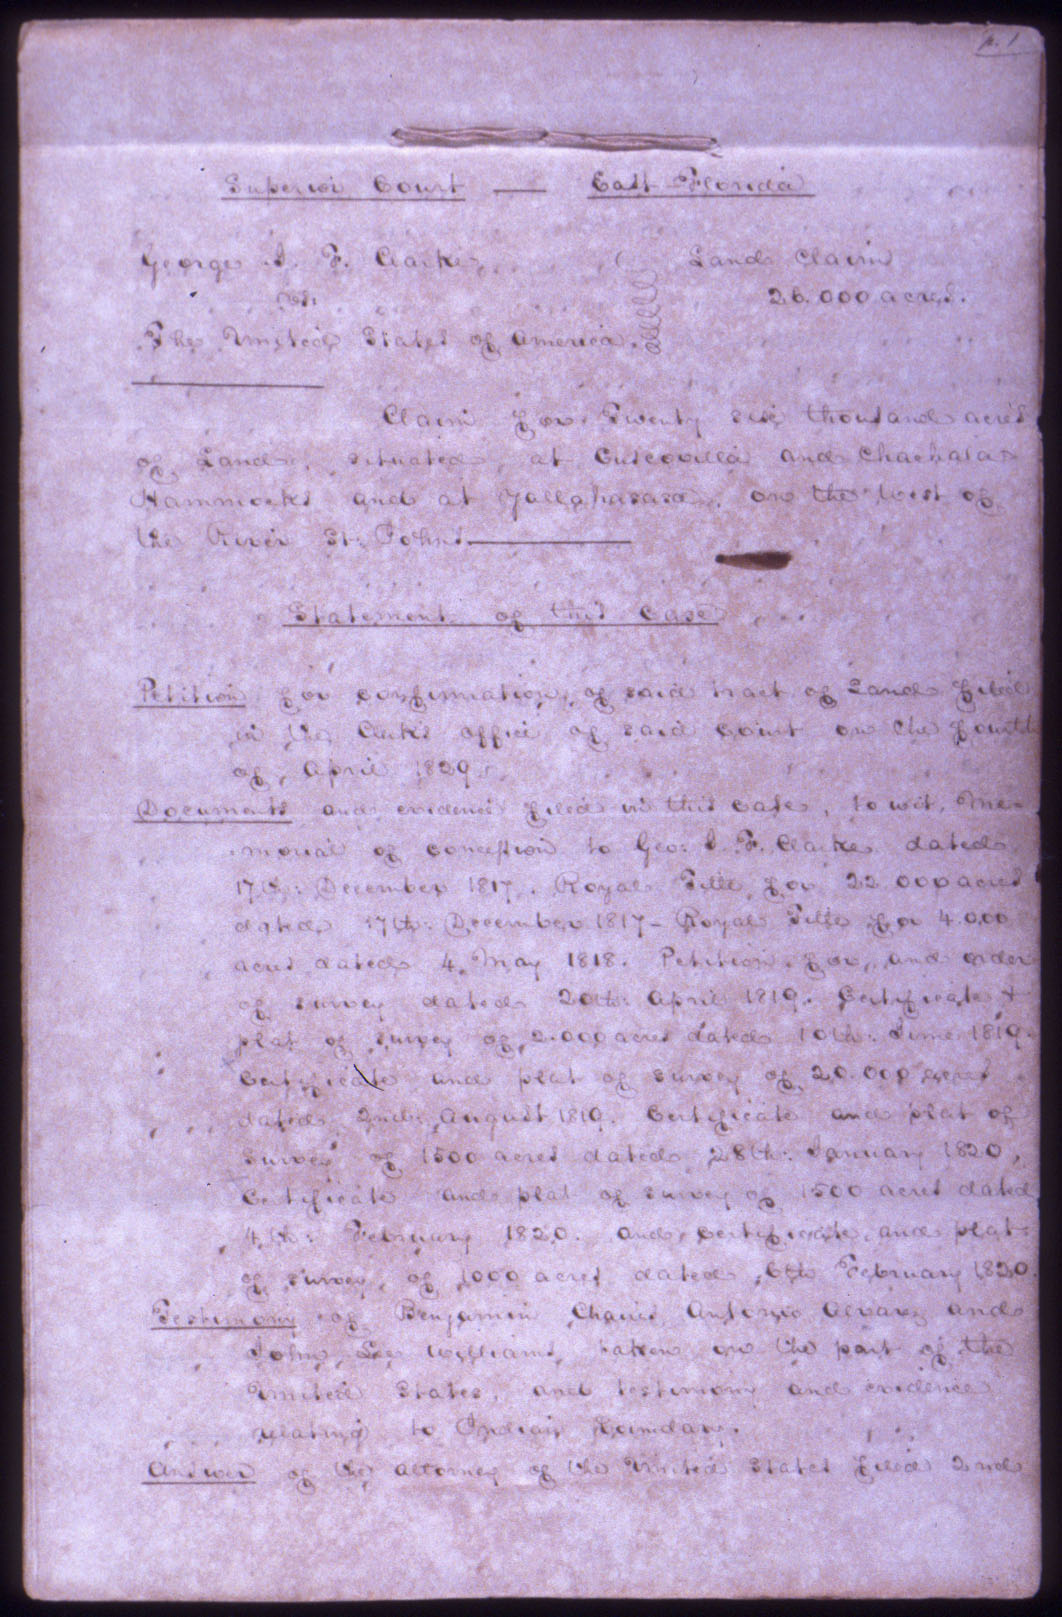 p. 1
Superior Court — East Florida
George I. F. Clarke Land Claim
vs: 26.000 acres.
The United States of America.
Claim for Twenty six thousand acres
of Land, situated, at Cuscovilla and Chachala
Hammocks and at Yallahasasa, on the West of
the River St: John's
Statement of this Case
Petition for confirmation of said tract of Land filed
in the Clerks office of said Court on the fourth
of April 1829.
Documents and evidence filed in this case, to wit, Me-
morial of concession to Geo: I. F. Clarke dated
17th: December 1817. Royal Title for 22.000 acres
dated 17th: December 1817 - Royal Title for 4.000
acres dated 4 May 1818. Petition for, and order
of survey dated 20th: April 1819. Certificate &
plat of survey of 2.000 acres dated 10th: June 1819.
Certificate and plat of survey of 20.000 acres
dated 2nd: August 1819. Certificate and plat of
survey of 1500 acres dated 28th: January 1820,
Certificate and plat of survey of 1500 acres dated
4th: February 1820. and, certificate and plat
of survey, of 1000 acres dated 6th February 1820.
Testimony of Benjamin Chaires Antonio Alvarez and
John Lee Williams, taken on the part of the
United States, and testimony and evidence
relating to Indian boundary.
Answer of the Attorney of the United States filed 2nd